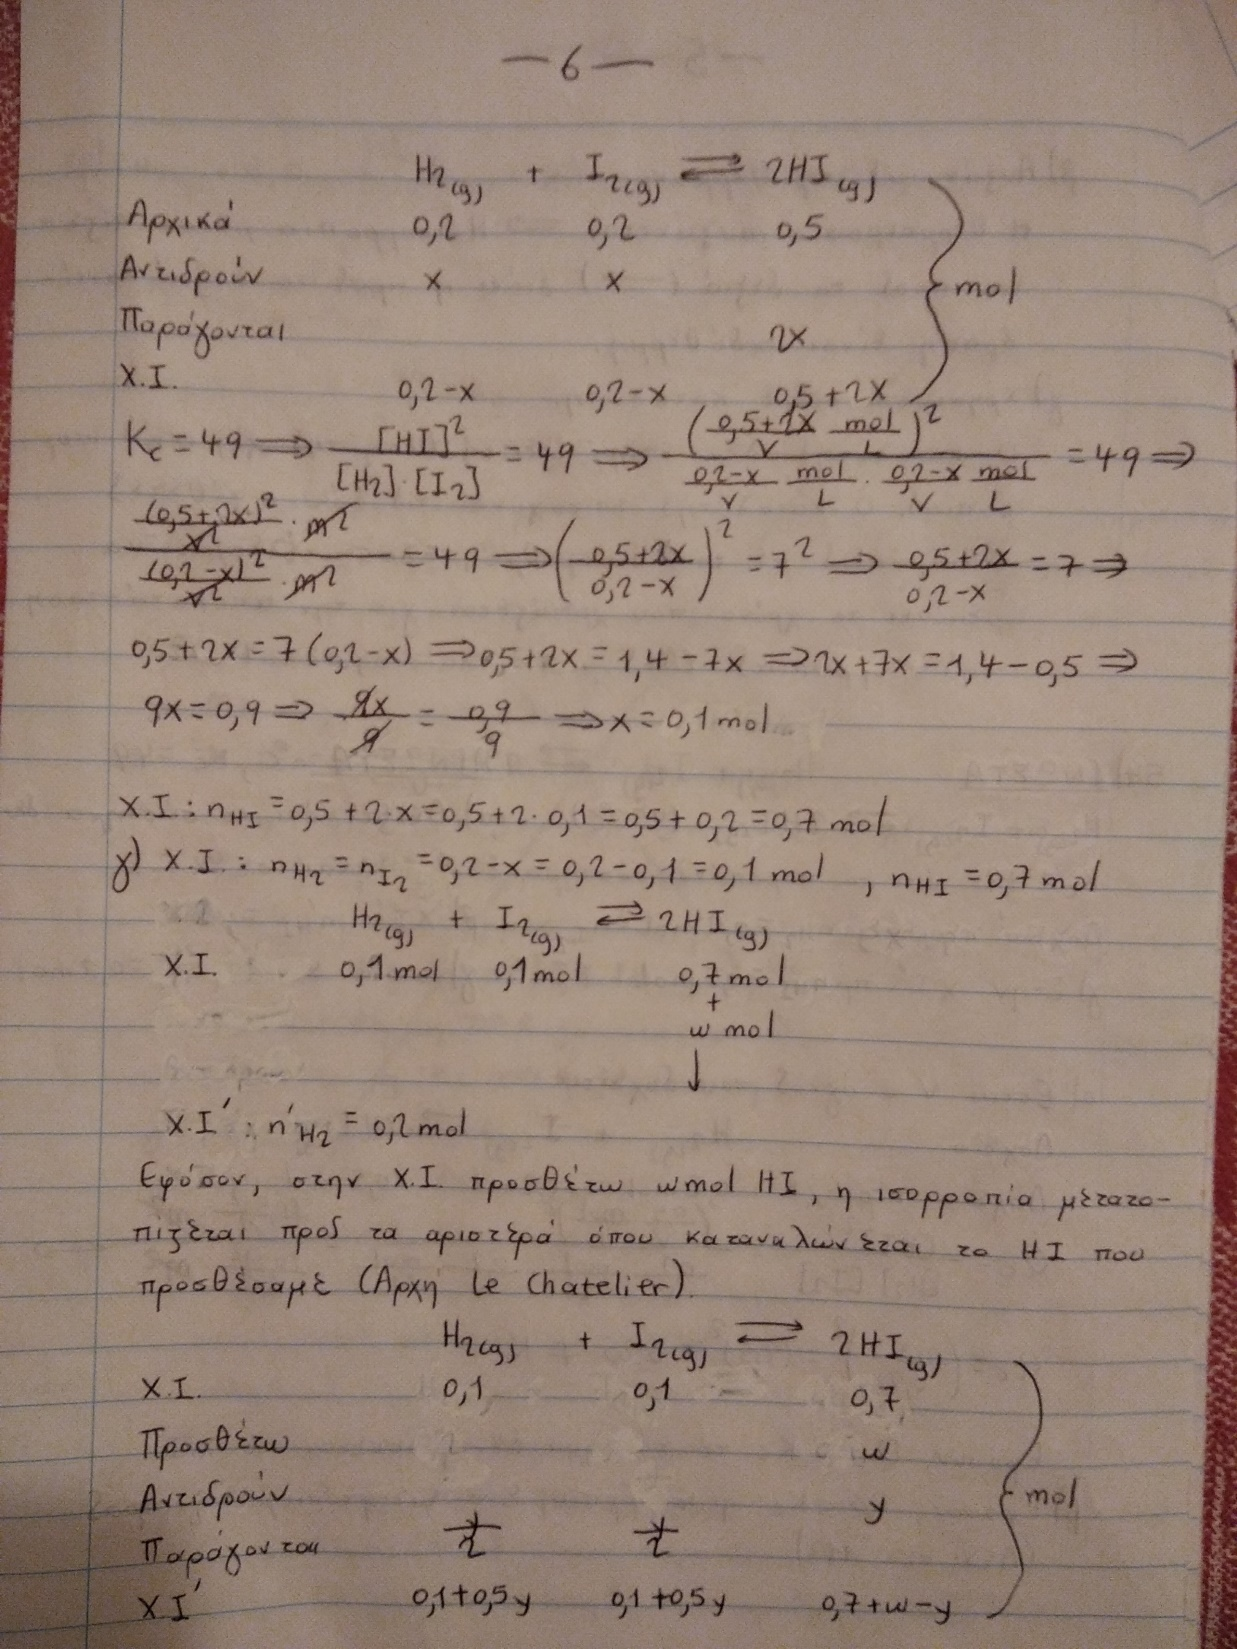 —6—
H₂(g) + I₂(g) ⇌ 2HI(g)
Αρχικά 0,2 0,2 0,5
Αντιδρούν x x } mol
Παράγονται 2x
Χ.Ι. 0,2-x 0,2-x 0,5+2x
Kc = 49 ⟹ [HI]²/([H₂]·[I₂]) = 49 ⟹ ((0,5+2x)/V mol/L)² / ((0,2-x)/V mol/L · (0,2-x)/V mol/L) = 49 ⟹
((0,5+2x)²/V² · M²) / ((0,2-x)²/V² · M²) = 49 ⟹ ((0,5+2x)/(0,2-x))² = 7² ⟹ (0,5+2x)/(0,2-x) = 7 ⟹
0,5+2x = 7(0,2-x) ⟹ 0,5+2x = 1,4-7x ⟹ 2x+7x = 1,4-0,5 ⟹
9x = 0,9 ⟹ 9x/9 = 0,9/9 ⟹ x = 0,1 mol
Χ.Ι: nHI = 0,5+2·x = 0,5+2·0,1 = 0,5+0,2 = 0,7 mol
γ) Χ.Ι.: nH₂ = nI₂ = 0,2-x = 0,2-0,1 = 0,1 mol , nHI = 0,7 mol
H₂(g) + I₂(g) ⇌ 2HI(g)
Χ.Ι. 0,1 mol 0,1 mol 0,7 mol
+
ω mol
↓
Χ.Ι΄: n΄H₂ = 0,2 mol
Εφόσον, στην Χ.Ι. προσθέτω ω mol HI, η ισορροπία μετατο-
πίζεται προς τα αριστερά όπου καταναλώνεται το HI που
προσθέσαμε (Αρχή Le Chatelier).
H₂(g) + I₂(g) ⇌ 2HI(g)
Χ.Ι. 0,1 0,1 0,7
Προσθέτω ω
Αντιδρούν y } mol
Παράγονται y/2 y/2
ΧΙ΄ 0,1+0,5y 0,1+0,5y 0,7+ω-y